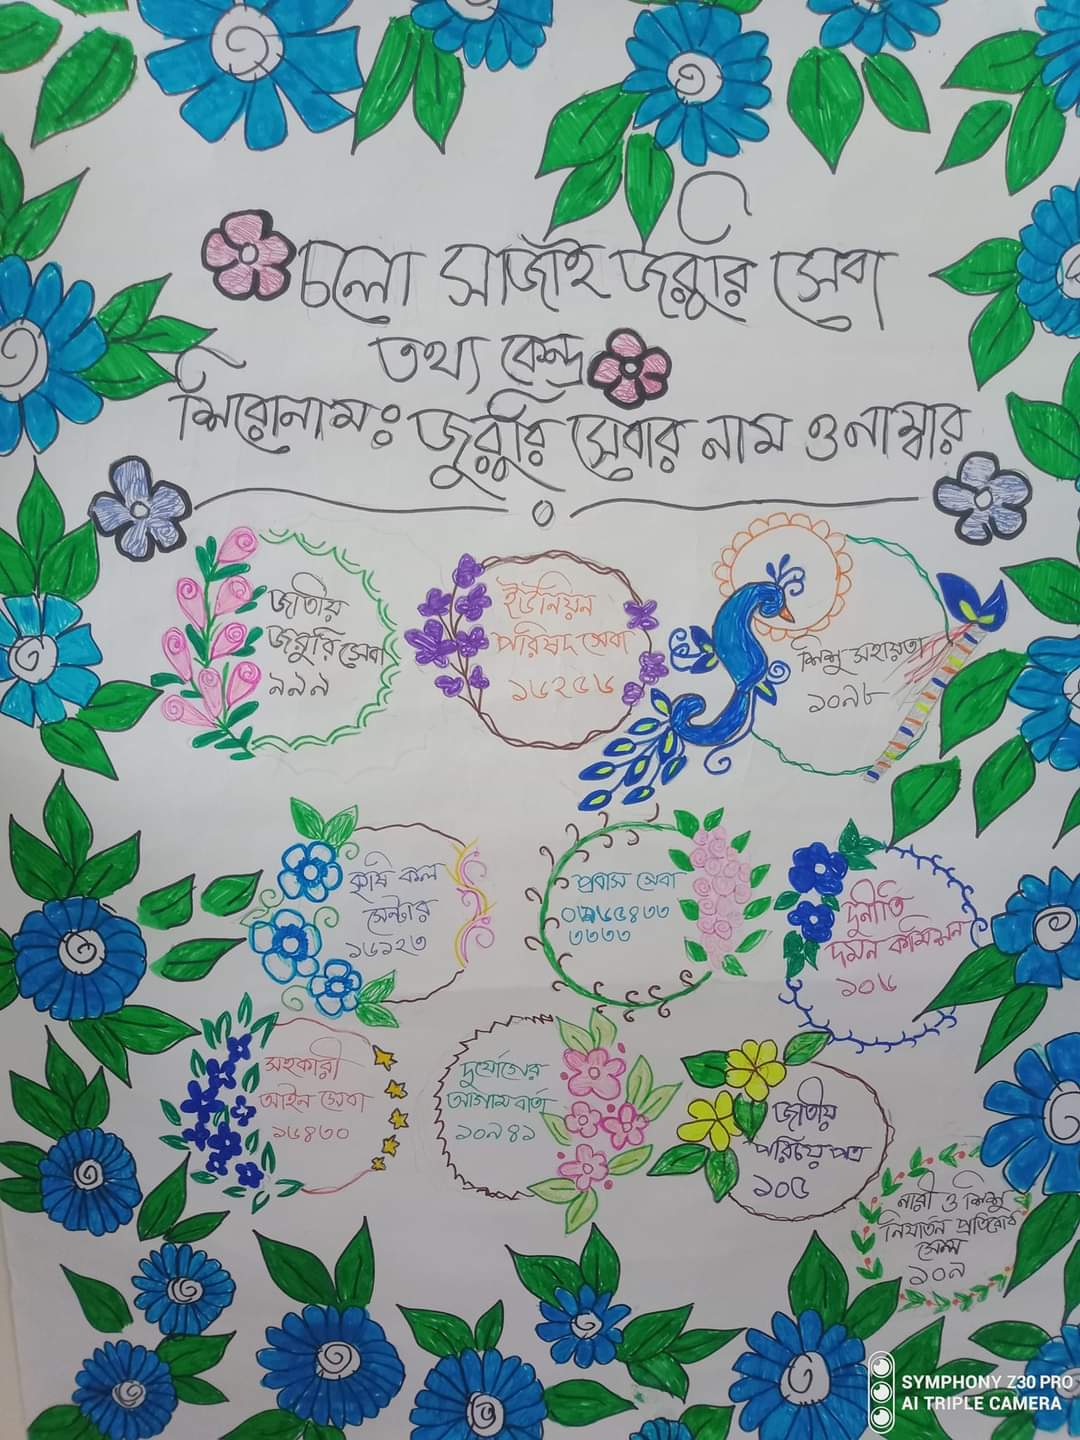 চলো সাজাই জরুরি সেবা
তথ্য কেন্দ্র
শিরোনামঃ জরুরি সেবার নাম ও নাম্বার
জাতীয়
জরুরি সেবা
৯৯৯
ইউনিয়ন
পরিষদ সেবা
১৬২৫৬
শিশু সহায়তা
১০৯৮
কৃষি কল
সেন্টার
১৬১২৩
প্রবাস সেবা
৩৩৩৩
দুর্নীতি
দমন কমিশন
১০৬
সরকারী
আইন সেবা
১৬৪৩০
দুর্যোগের
আগাম বার্তা
১০৯৪১
জাতীয়
পরিচয় পত্র
১০৫
নারী ও শিশু
নির্যাতন প্রতিরোধ
সেল
১০৯
SYMPHONY Z30 PRO
AI TRIPLE CAMERA